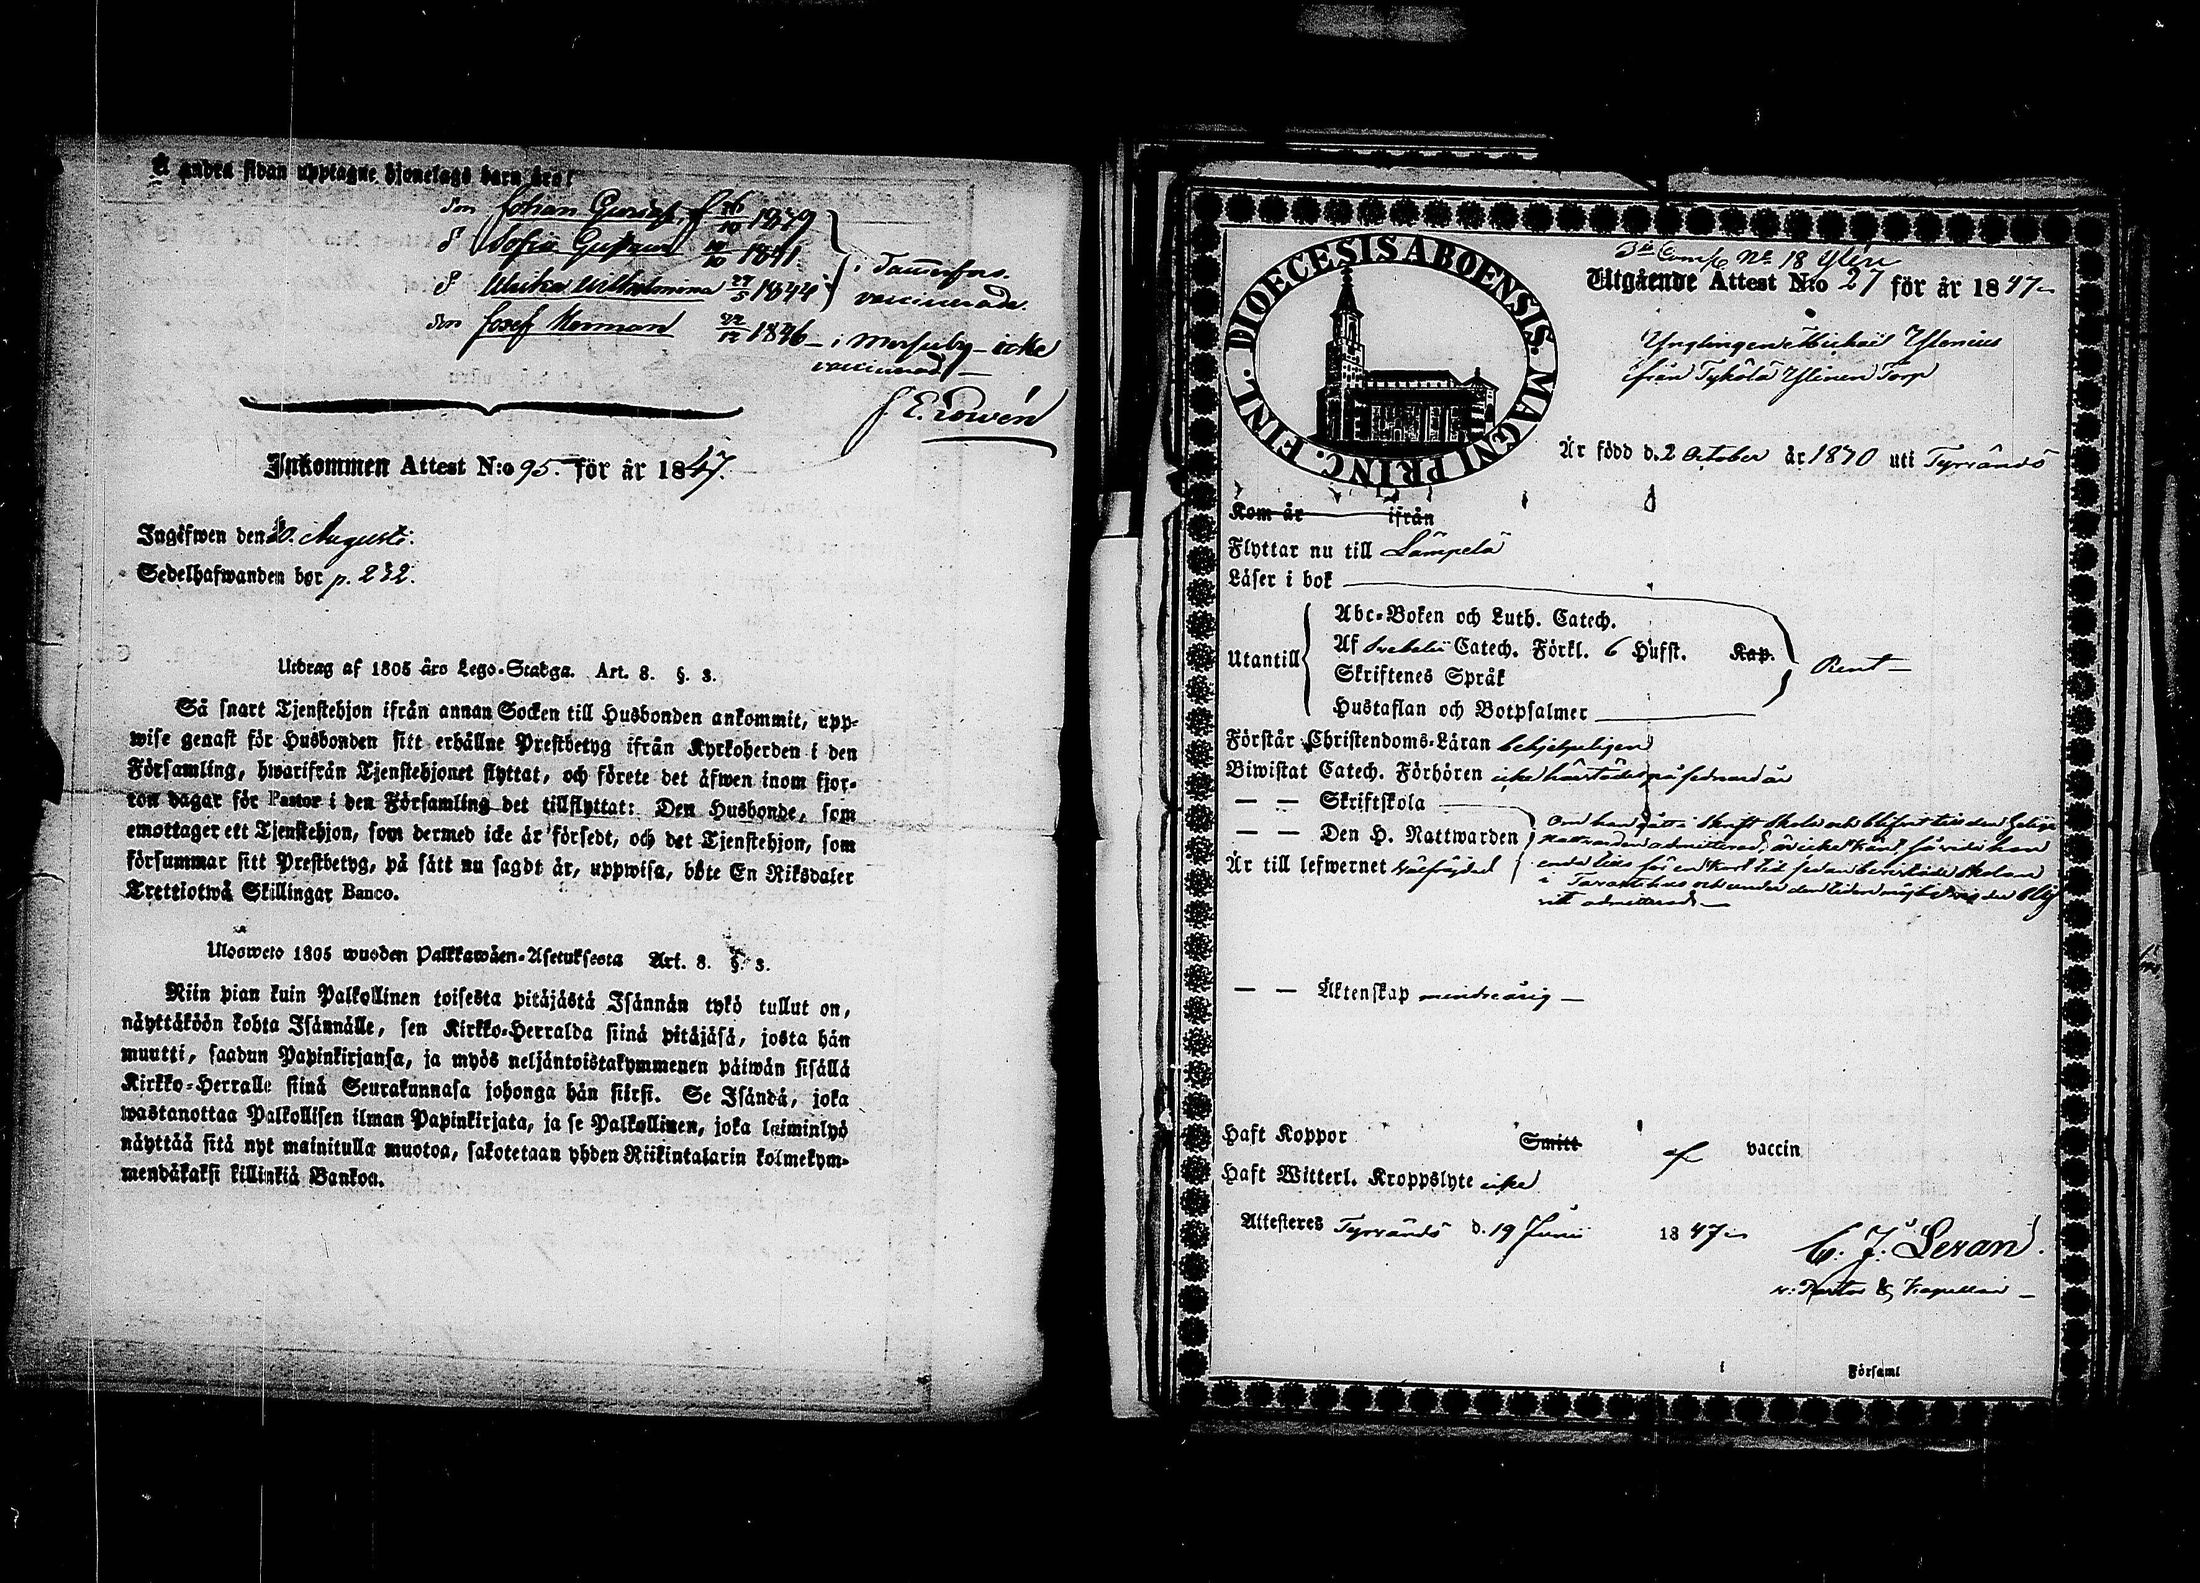 å andra sidan upptagne hjonelags barn äro:
Son Johan Gustaf f 26/10 1839
D Sofia Gustava 10/10 1841
D Ulrika Wilhelmina 27/5 1844
i Tamerfors.
vaccinerade.
Son Josef Herman 22/12 1846 – i Messuby – icke
vaccinerad –
J. E. Lowén
Inkommen Attest N:o 95. för år 1847.
Ingifwen den 20. Augusti.
Sedelhafwanden bor p. 232.
Utdrag af 1805 års Lego-Stadga. Art. 8. §. 3.
Så snart Tjenstehjon ifrån annan Socken till Husbonden ankommit, upp-
wise genast för Husbonden sitt erhållne Prestbetyg ifrån Kyrkoherden i den
Församling, hwarifrån Tjenstehjonet flyttat, och förete det äfwen inom fjor-
ton dagar för Pastor i den Församling det tillflyttat: Den Husbonde, som
emottager ett Tjenstehjon, som dermed icke är försedt, och det Tjenstehjon, som
försummar sitt Prestbetyg, på sätt nu sagdt är, uppwisa, böte En Riksdaler
Trettiotwå Skillingar Banco.
Ulosweto 1805 wuoden Palkkawäen-Asetuksesta Art. 8. §. 3.
Niin pian kuin Palkollinen toisesta pitäjästä Isännän tykö tullut on,
näyttäköön kohta Isännälle, sen Kirkko-Herralda siinä pitäjäsä, josta hän
muutti, saadun Papinkirjansa, ja myös neljäntoistakymmenen päiwän sisällä
Kirkko-Herralle siinä Seurakunnasa johonga hän siirsi. Se Isändä, joka
wastanottaa Palkollisen ilman Papinkirjata, ja se Palkollinen, joka laiminlyö
näyttää sitä nyt mainitulla muotoa, sakotetaan yhden Riikintalarin kolmekym-
mendäkaksi killinkiä Bankoa.
DIOECESIS ABOENSIS. MAGNI PRINC. FINL.
3de Comp Nr 18 Ylén
Utgående Attest N:o 27 för år 1847
Ynglingen Michaël Ylenius
ifrån Tykölä Ylinen Torp
Är född d. 2 October år 1830 uti Tyrvändö
Kom år ifrån
Flyttar nu till Lämpelä
Läser i bok
Utantill
Abc-Boken och Luth. Catech.
Af Svebelii Catech. Förkl. 6 Hufst. Kap.
Skriftenes Språk
Hustaflan och Botpsalmer
Rent –
Förstår Christendoms-Läran behjelpeligen
Biwistat Catech. Förhören icke härstädes på sednare år
— — Skriftskola
— — Den H. Nattwarden
Om han gått i Skrift Skola och blifvit till den Heliga
Nattvarden admitterad, är icke känt härvid; han
enda läs för en kort tid sedan bevistade skolan
i Tavastehus och under den tiden möjligtvis der blif
vit admitterad. —
Är till lefwernet Wälfrejdad
— — Äktenskap minderårig –
Haft Koppor Smitt af vaccin
Haft Witterl. Kroppslyte icke
Attesteres Tyrvändö d. 19 Junii 1847
C. J. Lexan.
v: Pastor & Kapellan –
Församl